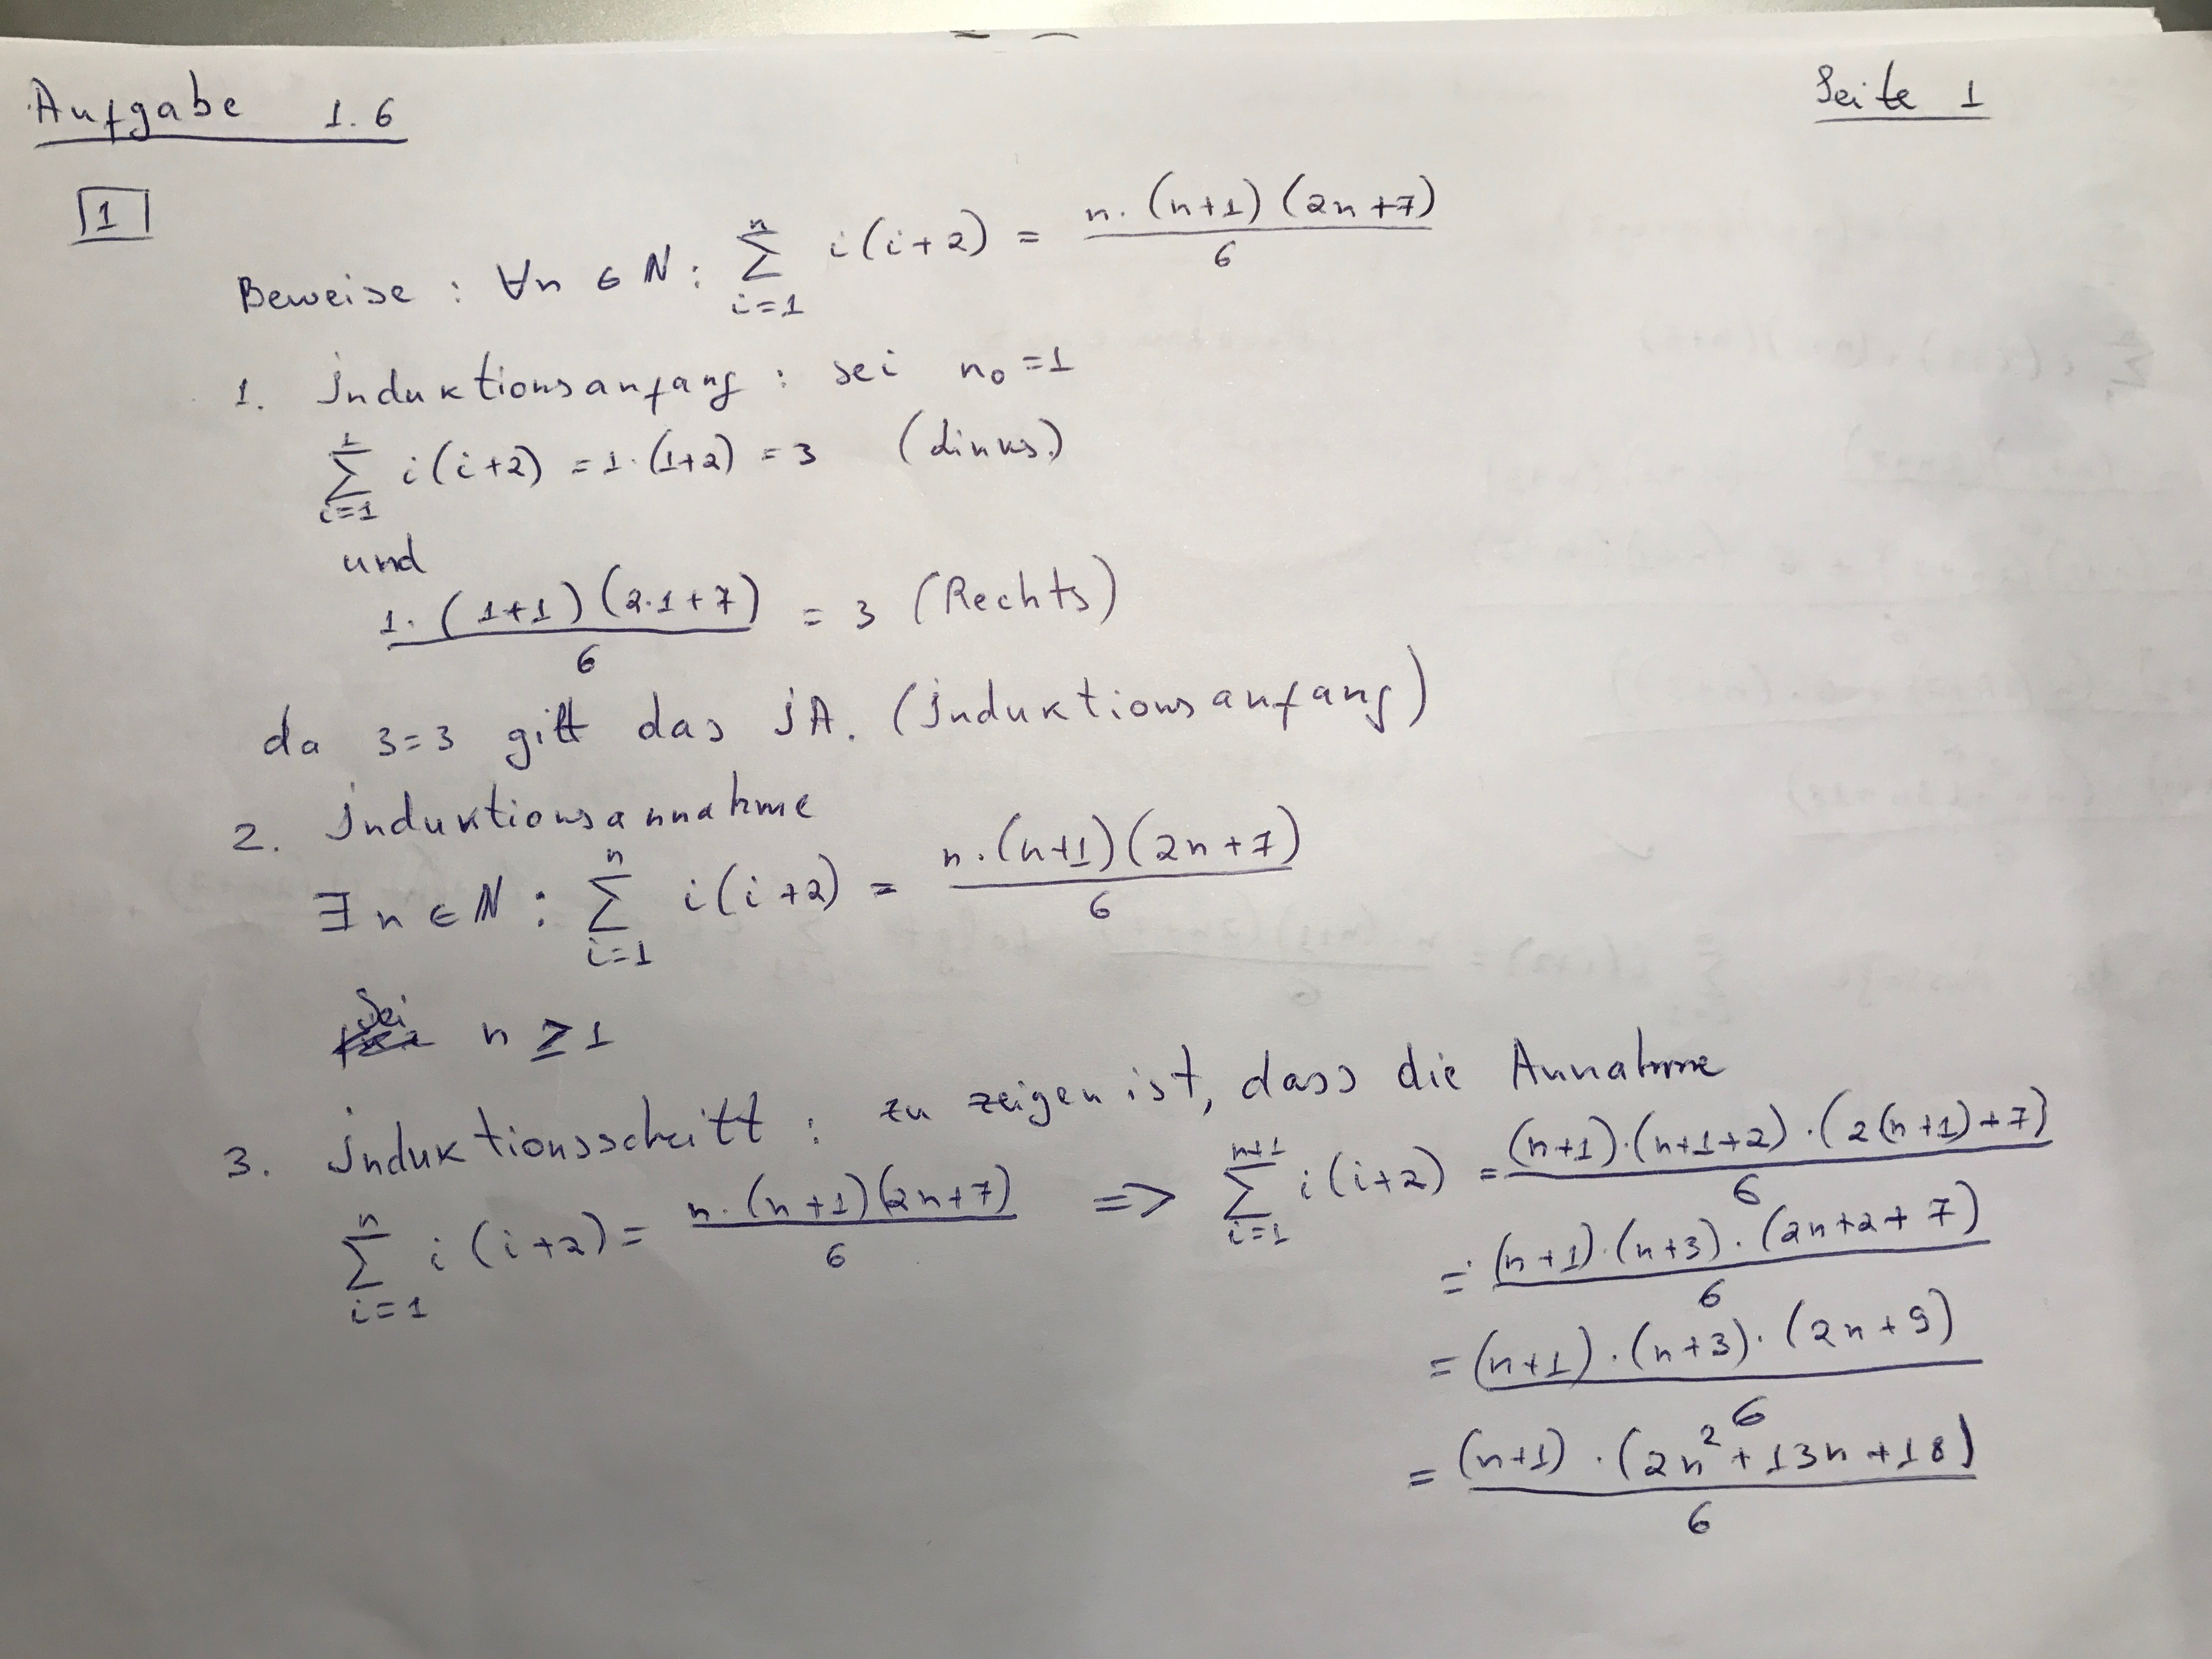 Aufgabe 1.6
Seite 1
1
Beweise : ∀n ∈ ℕ : ∑_{i=1}^{n} i(i+2) = n·(n+1)(2n+7) / 6
1. Induktionsanfang : sei n₀=1
∑_{i=1}^{1} i(i+2) = 1·(1+2) = 3 (Links.)
und
1·(1+1)(2·1+7) / 6 = 3 (Rechts)
da 3=3 gilt das IA. (Induktionsanfang)
2. Induktionsannahme
∃ n ∈ ℕ : ∑_{i=1}^{n} i(i+2) = n·(n+1)(2n+7) / 6
Sei n ≥ 1
3. Induktionsschritt : zu zeigen ist, dass die Annahme
∑_{i=1}^{n} i(i+2) = n·(n+1)(2n+7) / 6 => ∑_{i=1}^{n+1} i(i+2) = (n+1)·(n+1+2)·(2(n+1)+7) / 6
= (n+1)·(n+3)·(2n+2+7) / 6
= (n+1)·(n+3)·(2n+9) / 6
= (n+1)·(2n²+13n+18) / 6